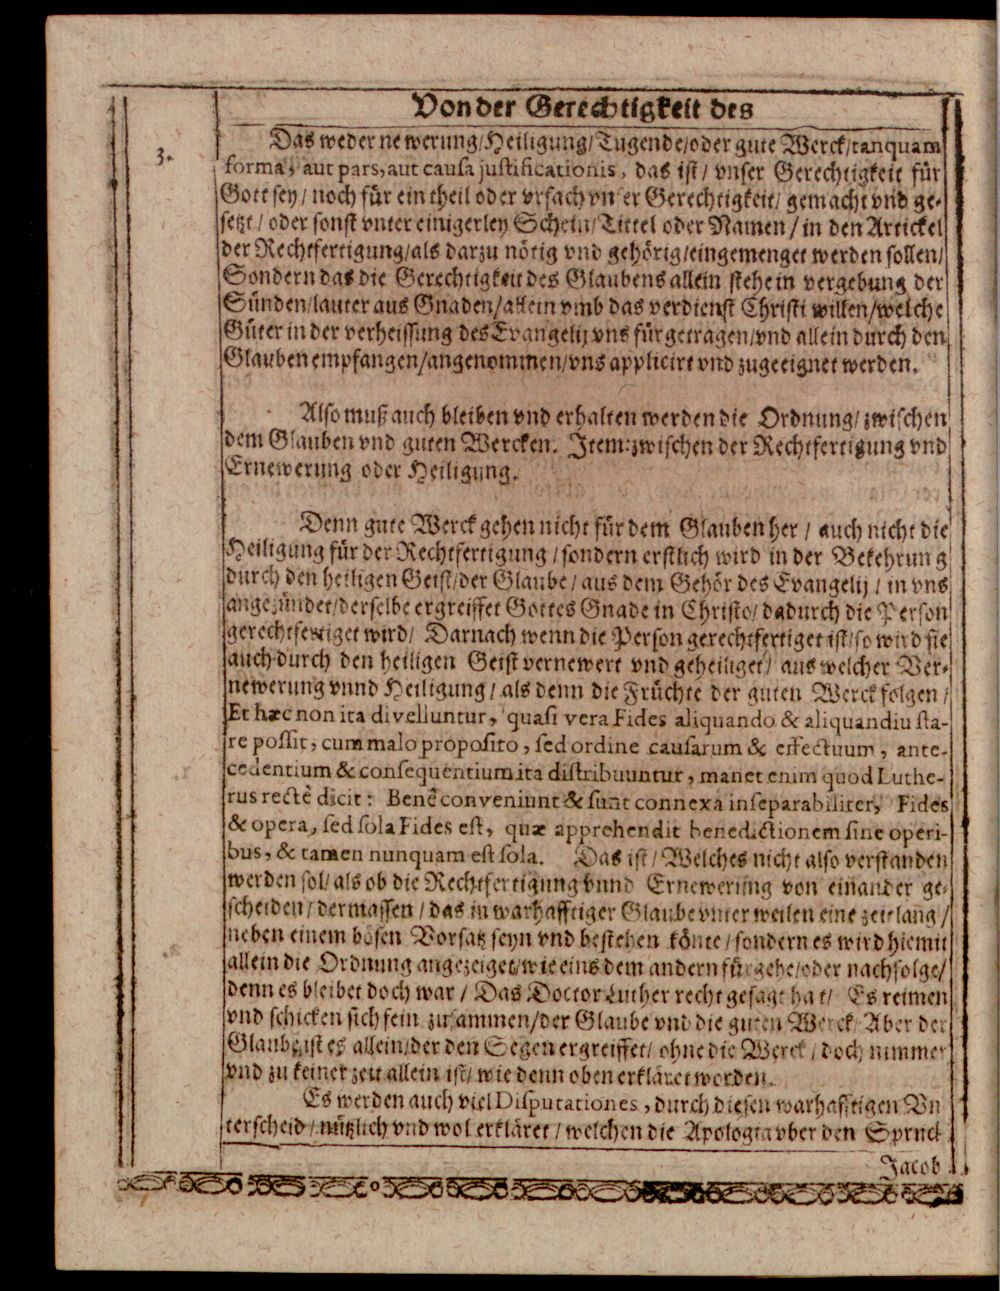 Von der Gerechtigkeit des
3.
Das weder newerung/Heiligung/Tugende/oder gute Werck/tanquam
forma, aut pars, aut causa justificationis, das ist/ vnser Gerechtigkeit für
Gott sey/ noch für ein theil oder vrsach vnser Gerechtigkeit/ gemacht vnd ge-
setzt/ oder sonst vnter einigerley Schein/Tittel oder Namen/ in den Artickel
der Rechtfertigung/als darzu nötig vnd gehörig/eingemenget werden sollen/
Sondern das die Gerechtigkeit des Glaubens allein stehe in vergebung der
Sünden/lauter aus Gnaden/allein vmb das verdienst Christi willen/welche
Güter in der verheissung des Evangelij vns fürgetragen/vnd allein durch den
Glauben empfangen/angenommen/vns applicirt vnd zugeeignet werden.
Also muß auch bleiben vnd erhalten werden die Ordnung/ zwischen
dem Glauben vnd guten Wercken. Item: zwischen der Rechtfertigung vnd
Ernewerung oder Heiligung.
Denn gute Werck gehen nicht für dem Glauben her/ auch nicht die
Heiligung für der Rechtfertigung/ sondern erstlich wird in der Bekehrung
durch den heiligen Geist/der Glaube/ aus dem Gehör des Evangelij/ in vns
angezündet/derselbe ergreiffet Gottes Gnade in Christo/ dadurch die Person
gerechtfertiget wird/ Darnach wenn die Person gerechtfertiget ist/so wird sie
auch durch den heiligen Geist vernewert vnd geheiliget/ aus welcher Ver-
newerung vnnd Heiligung/ als denn die Früchte der guten Werck folgen/
Et hæc non ita divelluntur, quasi vera Fides aliquando & aliquandiu sta-
re possit, cum malo proposito, sed ordine causarum & effectuum, ante-
cedentium & consequentium ita distribuuntur, manet enim quod Luthe-
rus rectè dicit: Benè conveniunt & sunt connexa inseparabiliter, Fides
& opera, sed sola Fides est, quæ apprehendit benedictionem sine operi-
bus, & tamen nunquam est sola. Das ist/ Welches nicht also verstanden
werden sol/ als ob die Rechtfertigung vnnd Ernewerung von einander ge-
scheiden/ dermassen/ das in warhafftiger Glaube vnterweilen eine zeitlang/
neben einem bösen Vorsatz seyn vnd bestehen könte/ sondern es wird hiemit
allein die Ordnung angezeiget/wie eins dem andern fürgehe/oder nachfolge/
denn es bleibet doch war/ Das Doctor Luther recht gesagt hat/ Es reimen
vnd schicken sich fein zusammen/der Glaube vnd die guten Werck/ Aber der
Glaub ist es allein/der den Segen ergreiffet/ ohne die Werck/ doch nimmer
vnd zu keiner zeit allein ist/ wie denn oben erkläret worden.
Es werden auch viel Disputationes, durch diesen warhafftigen Vn
terscheid/ nützlich vnd wol erkläret/ welchen die Apologia vber den Spruch
Jacob